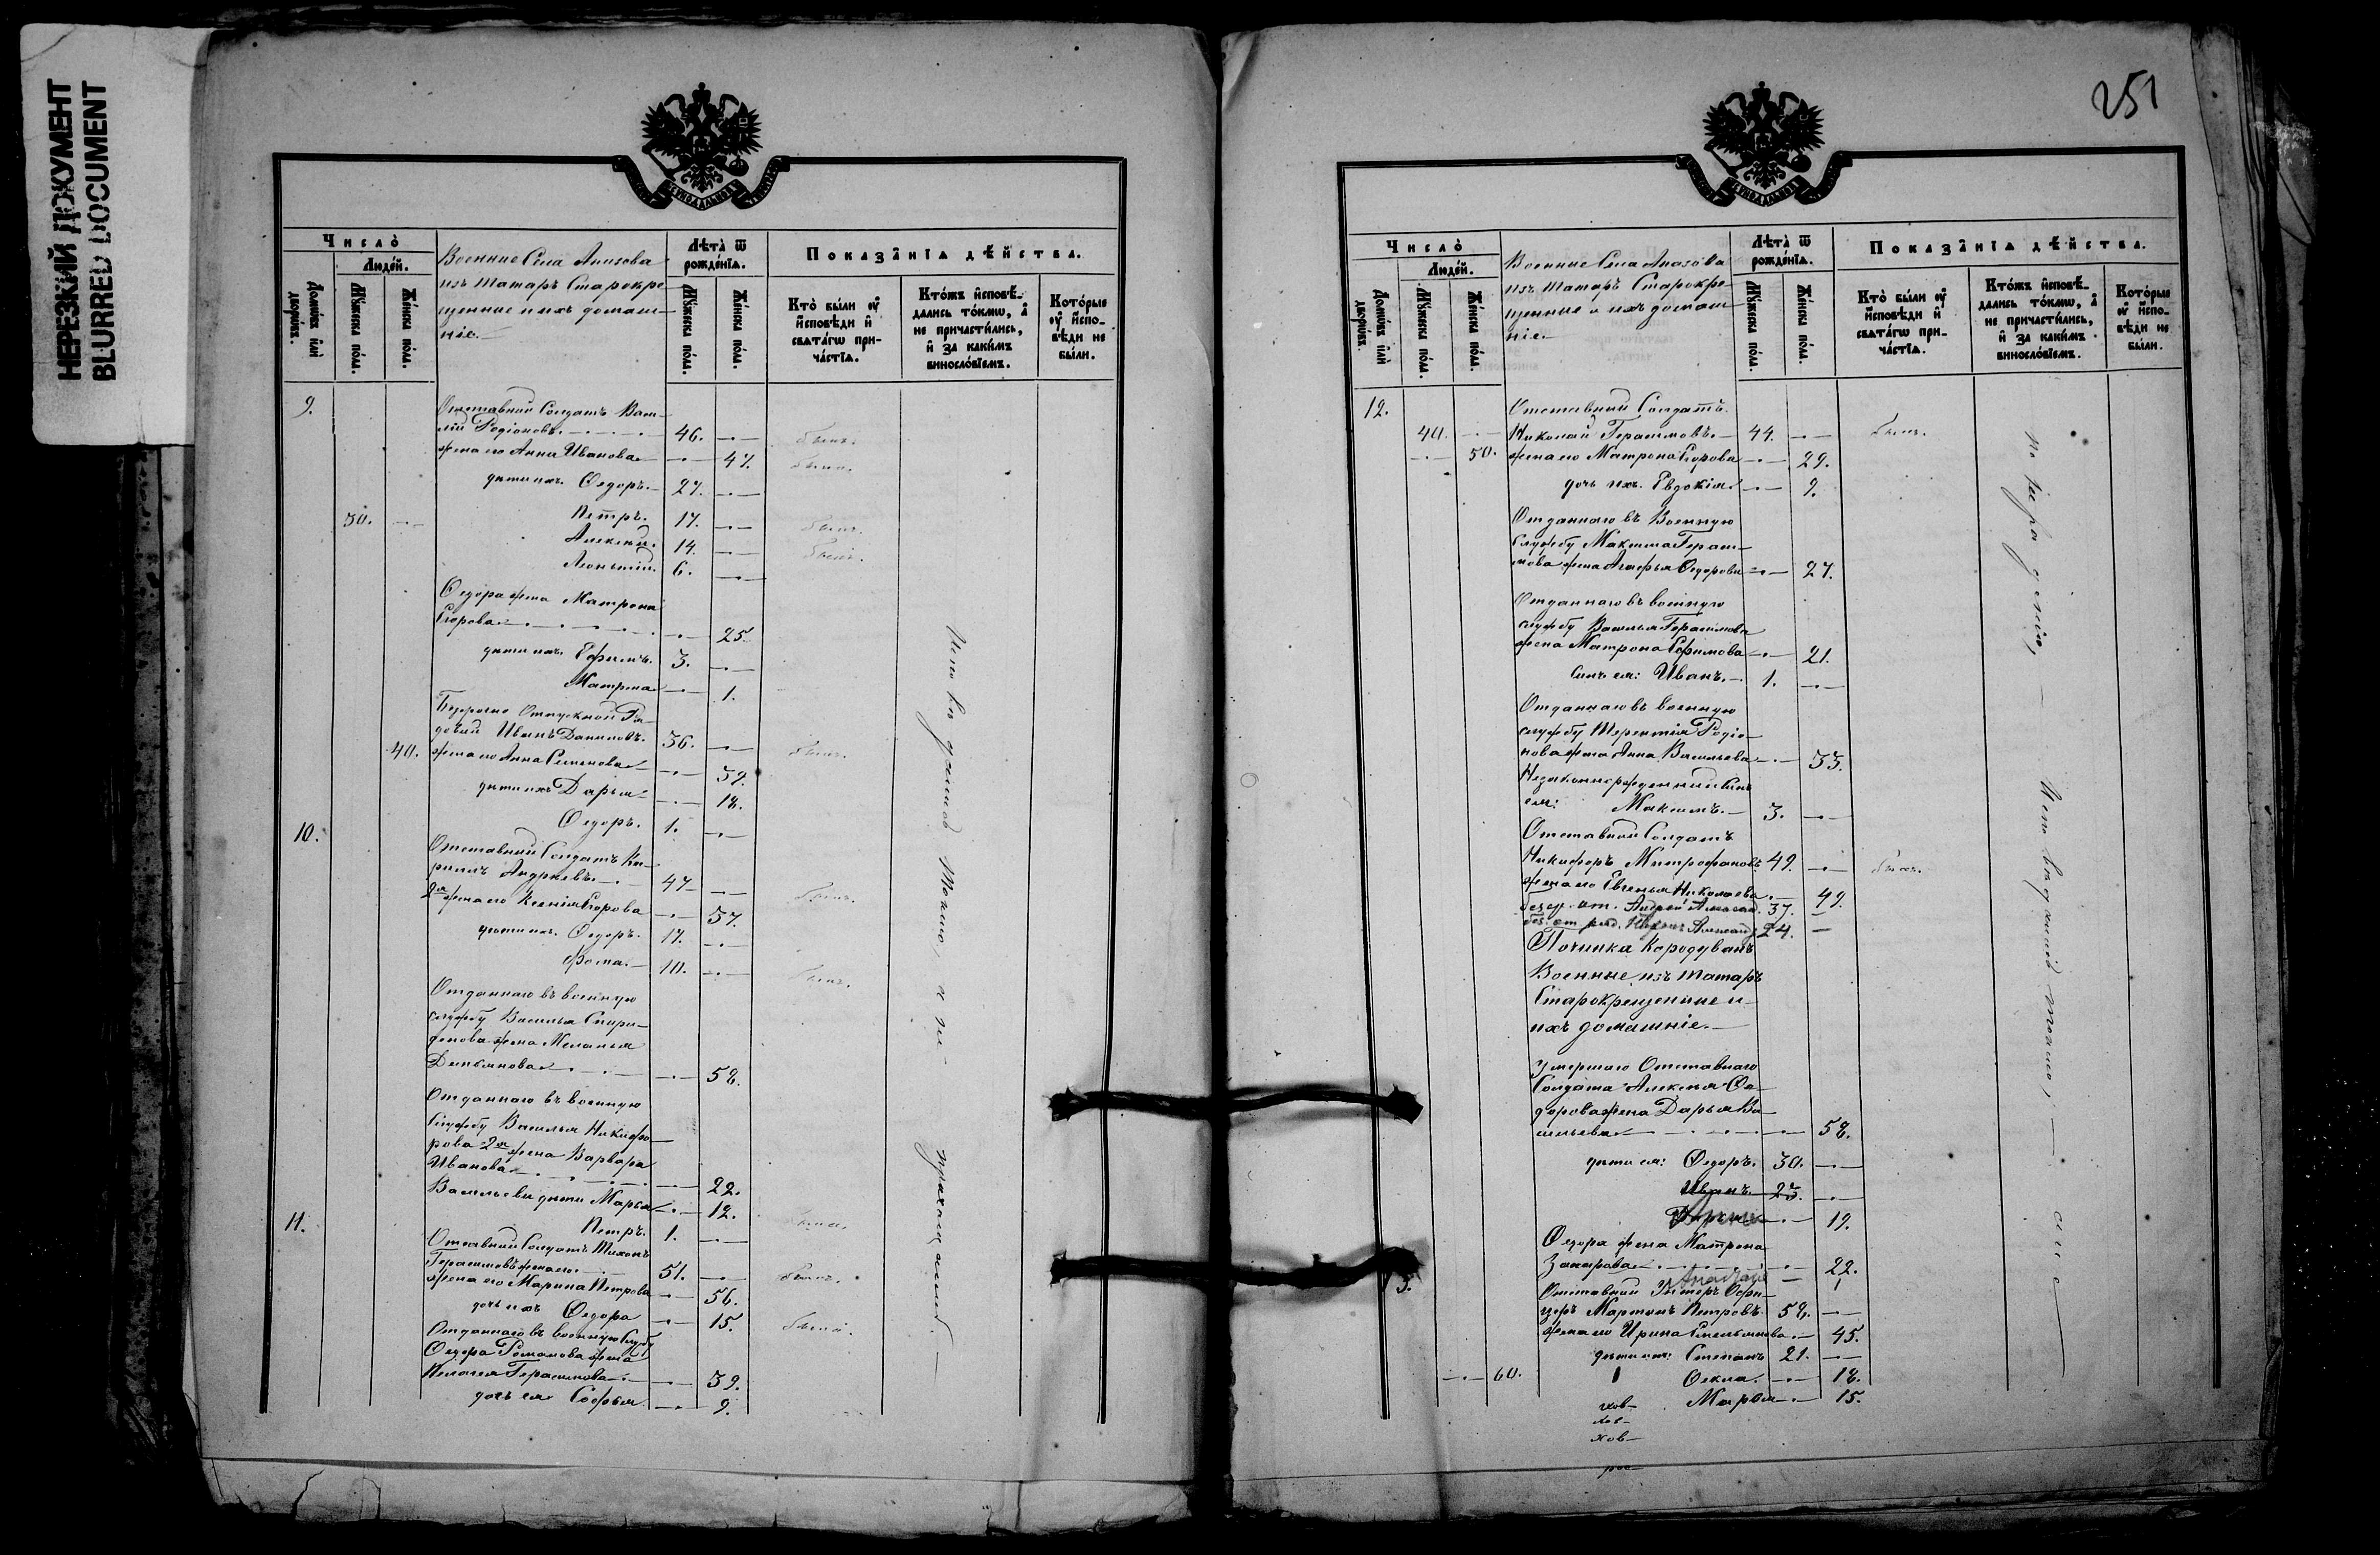 НЕРЕЗКИЙ ДОКУМЕНТ
BLURRED DOCUMENT
Число̀
Людей.
Домѡвъ или дворѡвъ.
Мꙋжеска полꙋ.
Женска полꙋ.
Военные Села Апазова
изъ татаръ Старокре-
щенные и ихъ домаш-
ніе.
Лѣта ѿ рожденїѧ.
Мꙋжеска полꙋ.
Женска полꙋ.
Показанїѧ дѣйства.
Кто были оу исповѣди и свѧтагѡ причастїѧ.
Ктожъ исповѣдались токмѡ, а не причастились, и за какимъ винословїемъ.
Которые оу исповѣди не были.
9.
Отставный Солдатъ Васи-
лій Родіоновъ. 46. былъ.
жена его Анна Иванова 47.
дѣти ихъ. Ѳедоръ. 27.
30. Петръ. 17.
Алексѣй. 14.
Леонтій. 6.
Ѳедора жена Матрона
Егорова 25.
дѣти ихъ. Ефимъ. 3.
Матрона 1.
Безсрочно Отпускной Ря-
довой Иванъ Даниловъ. 36.
40. жена его Анна Семенова 39.
дѣти ихъ Дарья 12.
Ѳедоръ. 1.
10.
Отставный Солдатъ Ки-
риллъ Андреевъ. 47
2я жена его Ксенія Егорова 37.
дѣти ихъ. Ѳедоръ. 17.
Ѳома. 10.
Отданнаго въ военную
службу Василья Спири-
донова жена Меланья
Демьянова 58.
Отданнаго въ военную
Службу Василья Никифо-
рова 2я жена Варвара
Иванова 22.
Васильевы дѣти Марья 12.
Петръ. 1.
11.
Отставный Солдатъ Тихонъ
Герасимовъ 51.
жена его Марина Петрова 56.
дочь ихъ Ѳедора 15.
Отданнаго въ военную Служ
Ѳедора Романова жена
Пелагея Герасимова 39.
дочь ея Софья 9.
251
Число̀
Людей.
Домѡвъ или дворѡвъ.
Мꙋжеска полꙋ.
Женска полꙋ.
Военные Села Апазова
изъ татаръ Старокре-
щенные и ихъ домаш-
ніе.
Лѣта ѿ рожденїѧ.
Мꙋжеска полꙋ.
Женска полꙋ.
Показанїѧ дѣйства.
Кто были оу исповѣди и свѧтагѡ причастїѧ.
Ктожъ исповѣдались токмѡ, а не причастились, и за какимъ винословїемъ.
Которые оу исповѣди не были.
12.
Отставный Солдатъ
40. Николай Герасимовъ. 44. былъ.
50. жена его Матрона Егорова 29.
дочь ихъ. Евдокія 9.
Отданнаго въ Военную
Службу Максима Гераси-
мова жена Агафья Ѳедорова 27.
Отданнаго въ военную
службу Василья Герасимова
жена Матрона Ефимова 21.
сынъ ея: Иванъ. 1.
Отданнаго въ военную
службу Терентія Родіо-
нова жена Анна Васильева 33.
Незаконнорожденный сынъ
ея: Максимъ. 3.
Отставный Солдатъ
Никифоръ Митрофановъ 49. былъ.
жена его Евгенья Николаева 49.
37.
24.
Починка Кородуванъ
Военные изъ татаръ
Старокрещенные и
ихъ домашніе.
Умершаго Отставнаго
Солдата Алексѣя Ѳе-
дорова жена Дарья Ва-
сильева 58.
дѣти ея: Ѳедоръ. 30.
Иванъ 23.
19.
Ѳедора жена Матрона
Захарова 22.
3.
Отставный Унтеръ Офи-
церъ Мартынъ Петровъ. 52.
жена его Ирина Емельянова 45.
дѣти ихъ: Степанъ 21.
60. Ѳекла. 18.
Марья 15.